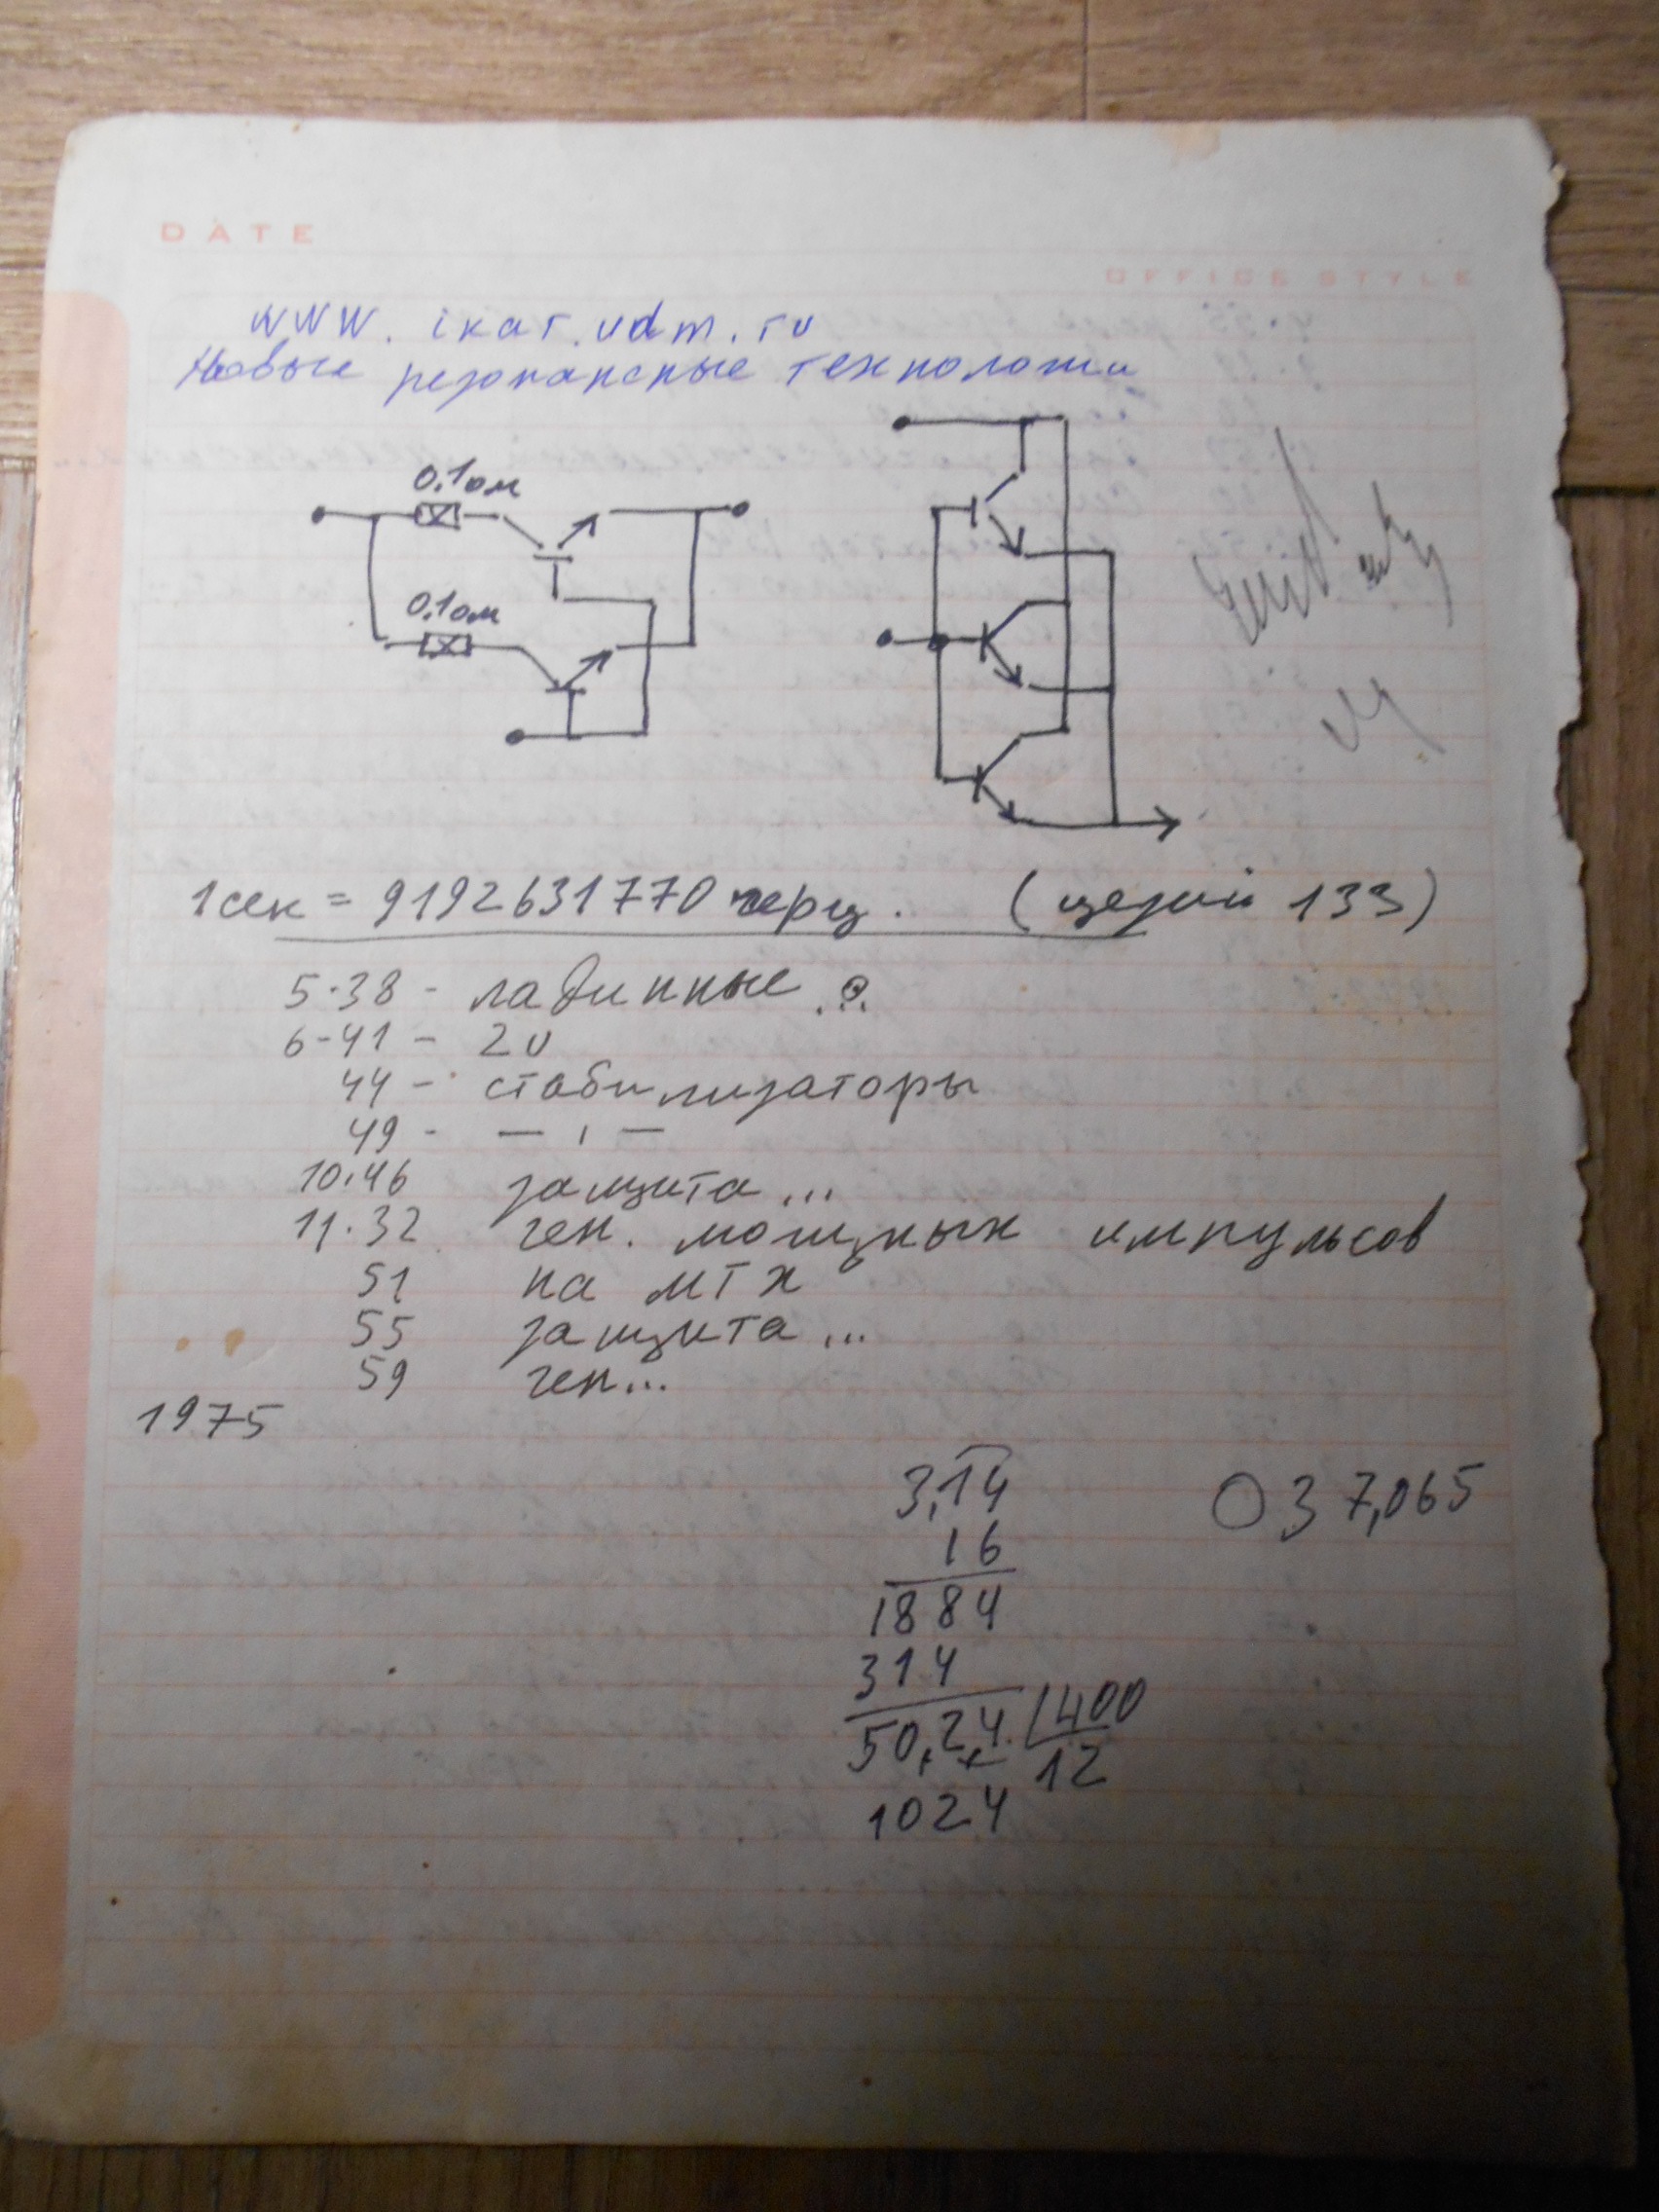 DATE
OFFICE STYLE
www.ikar.udm.ru
Новые резонансные технологии
0.1 ом
0.1 ом
1 сек = 9192631770 герц. (цезий 133)
5·38 - лавинные ...
6-41 - 20
44 - стабилизаторы
49 - — ı —
10.46 защита...
11.32 ген. мощных импульсов
51 на МТХ
55 защита...
59 ген...
1975
3,14
16
1884
314
50,24 400
12
1024
О 3 7,065